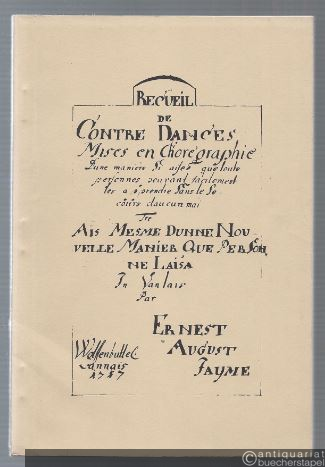 RECUEIL
DE
CONTRE DANCES
Mises en Choregraphie
Dune maniere Si aisée que toute
personnes peuvent facilement
les a prendre Sans le Se
cours daucun mai
Tre
AIS MESME DUNNE NOU-
VELLE MANIER QUE PERSON
NE LAISA
In Vantais
Par
ERNEST
AUGUST
JAYME
Wolffenbuttel
Lannais
1717
antiquariat
buecherstapel